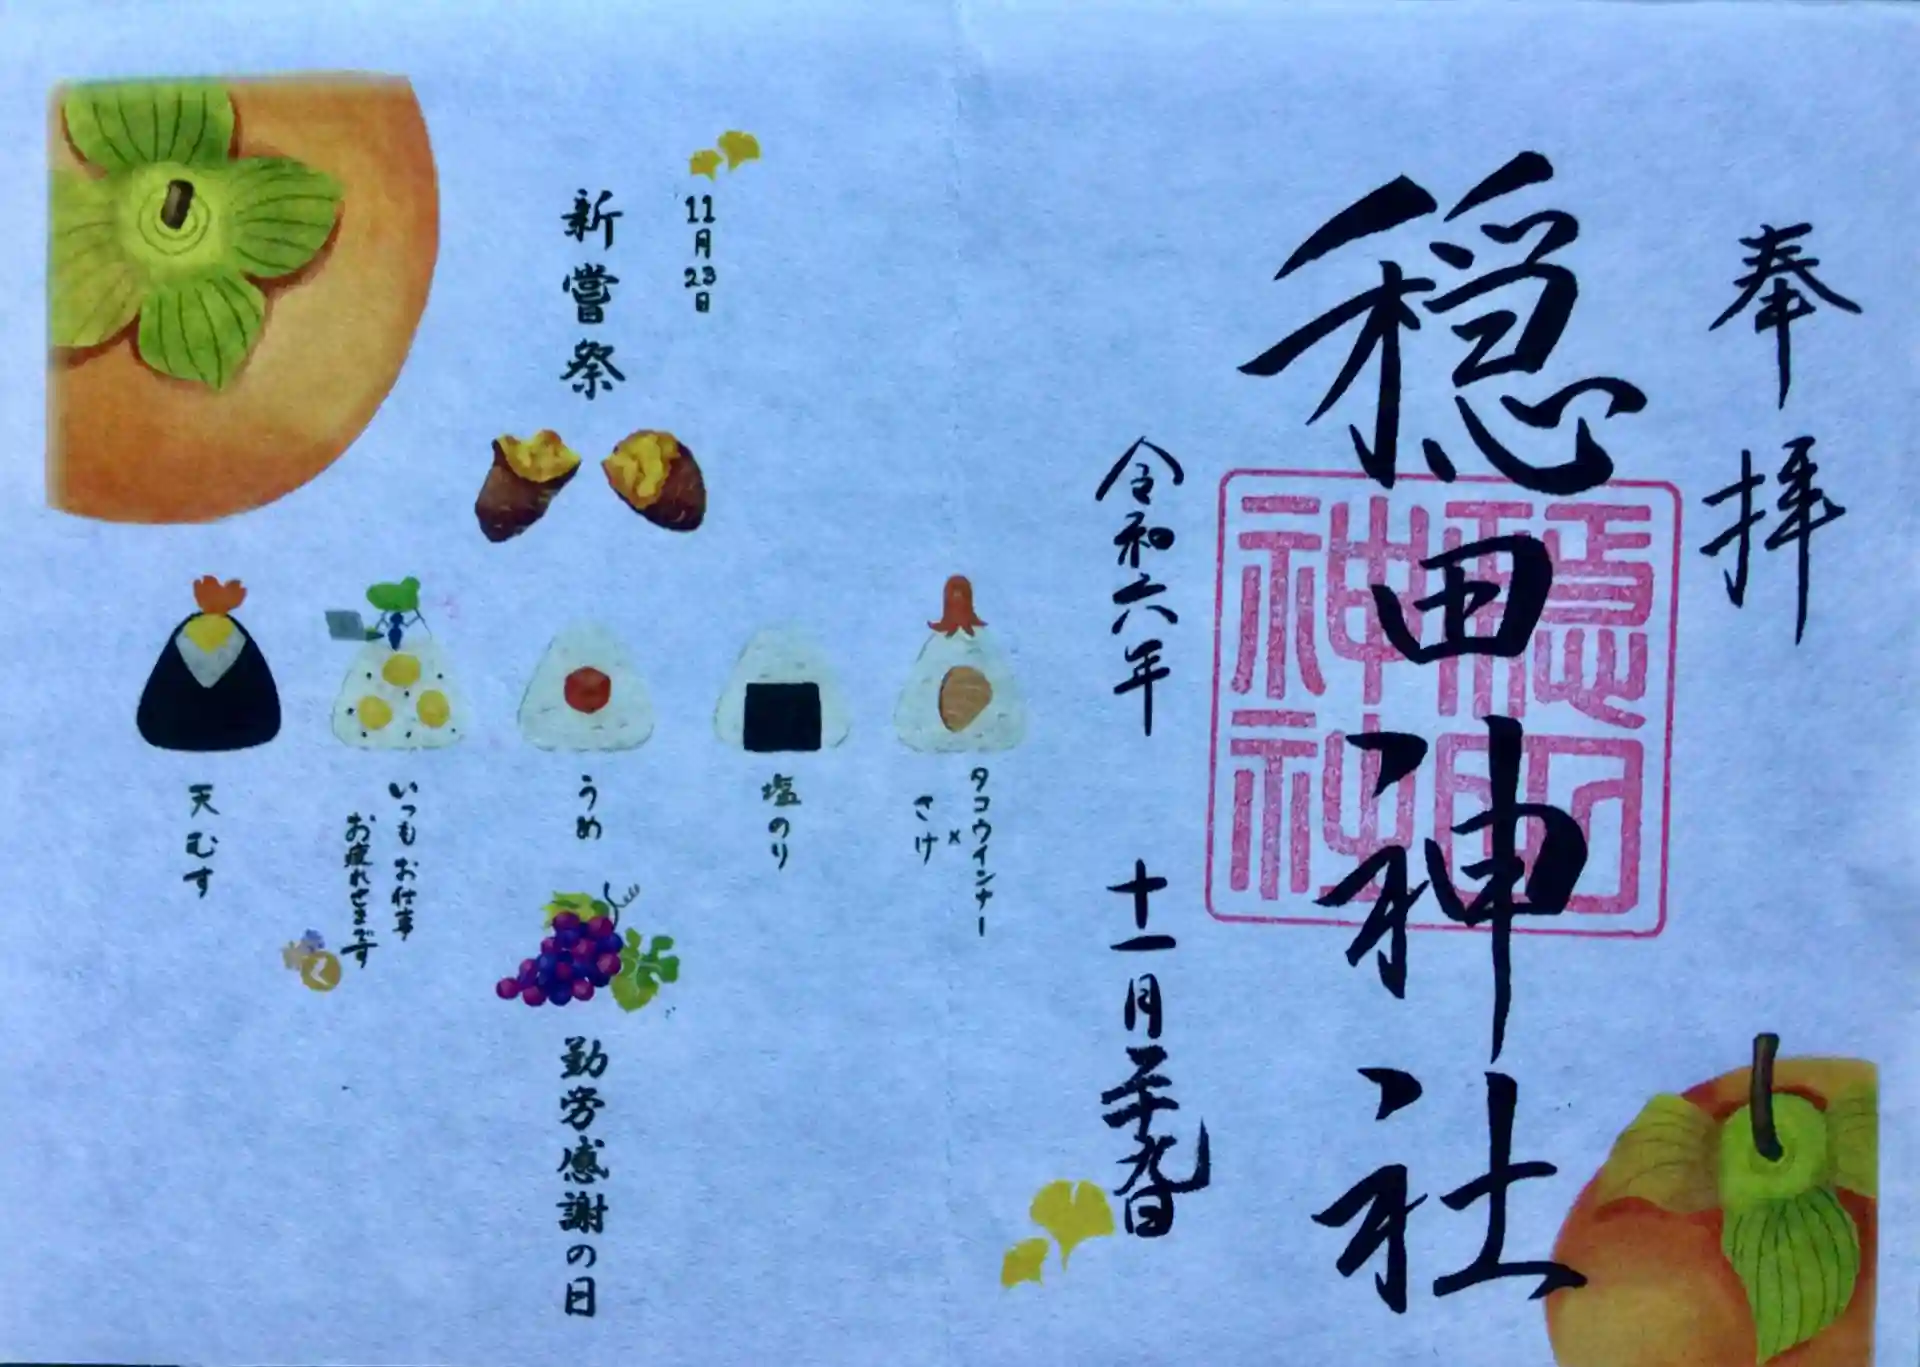 奉拝
穏田神社
穏田
神社
令和六年 十一月二十九日
11月23日
新嘗祭
タコウインナー
×
さけ
塩のり
うめ
いつもお仕事
お疲れさまです
く
天むす
勤労感謝の日